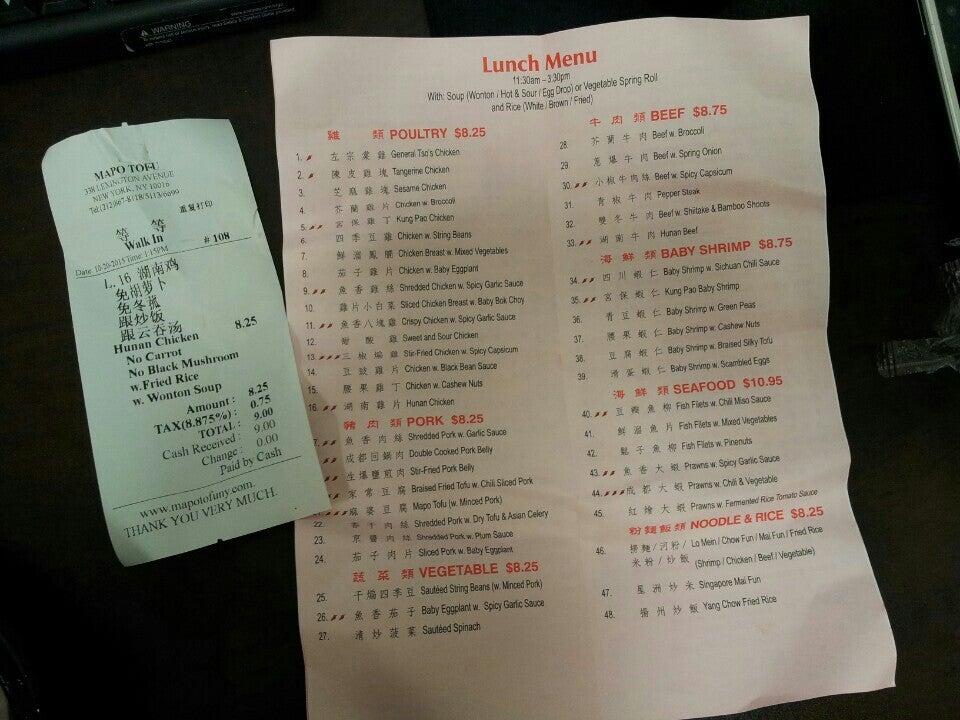 WARNING
MAPO TOFU
338 LEXINGTON AVENUE
NEW YORK, NY 10016
Tel:(212)867-8118/5113/6699
重复打印
等 等
Walk In # 108
Date 10-26-2015 Time 1:15PM
L. 16 湖南鸡
免胡萝卜
免冬菰
跟炒饭
跟云吞汤
Hunan Chicken 8.25
No Carrot
No Black Mushroom
w.Fried Rice
w. Wonton Soup
Amount : 8.25
TAX(8.875%) : 0.75
TOTAL : 9.00
Cash Received : 9.00
Change : 0.00
Paid by Cash
www.mapotofuny.com.
THANK YOU VERY MUCH.
Lunch Menu
11:30am – 3:30pm
With: Soup (Wonton / Hot & Sour / Egg Drop) or Vegetable Spring Roll
and Rice (White / Brown / Fried)
雞 類 POULTRY $8.25
1. 左宗棠雞 General Tso's Chicken
2. 陳皮雞塊 Tangerine Chicken
3. 芝麻雞塊 Sesame Chicken
4. 芥蘭雞片 Chicken w. Broccoli
5. 宮保雞丁 Kung Pao Chicken
6. 四季豆雞 Chicken w. String Beans
7. 鮮溜鳳脯 Chicken Breast w. Mixed Vegetables
8. 茄子雞片 Chicken w. Baby Eggplant
9. 魚香雞絲 Shredded Chicken w. Spicy Garlic Sauce
10. 雞片小白菜 Sliced Chicken Breast w. Baby Bok Choy
11. 魚香八塊雞 Crispy Chicken w. Spicy Garlic Sauce
12. 甜酸雞 Sweet and Sour Chicken
13. 三椒煸雞 Stir-Fried Chicken w. Spicy Capsicum
14. 豆豉雞片 Chicken w. Black Bean Sauce
15. 腰果雞丁 Chicken w. Cashew Nuts
16. 湖南雞片 Hunan Chicken
豬 肉 類 PORK $8.25
7. 魚香肉絲 Shredded Pork w. Garlic Sauce
成都回鍋肉 Double Cooked Pork Belly
生爆鹽煎肉 Stir-Fried Pork Belly
家常豆腐 Braised Tofu w. Chili Sliced Pork
麻婆豆腐 Mapo Tofu (w. Minced Pork)
22. 香干肉絲 Shredded Pork w. Dry Tofu & Asian Celery
23. 京醬肉絲 Shredded Pork w. Plum Sauce
24. 茄子肉片 Sliced Pork w. Baby Eggplant
蔬 菜 類 VEGETABLE $8.25
25. 干煸四季豆 Sautéed String Beans (w. Minced Pork)
26. 魚香茄子 Baby Eggplant w. Spicy Garlic Sauce
27. 清炒菠菜 Sautéed Spinach
牛 肉 類 BEEF $8.75
28. 芥蘭牛肉 Beef w. Broccoli
29. 蔥爆牛肉 Beef w. Spring Onion
30. 小椒牛肉絲 Beef w. Spicy Capsicum
31. 青椒牛肉 Pepper Steak
32. 雙冬牛肉 Beef w. Shiitake & Bamboo Shoots
33. 湖南牛肉 Hunan Beef
海 鮮 類 BABY SHRIMP $8.75
34. 四川蝦仁 Baby Shrimp w. Sichuan Chili Sauce
35. 宮保蝦仁 Kung Pao Baby Shrimp
36. 青豆蝦仁 Baby Shrimp w. Green Peas
37. 腰果蝦仁 Baby Shrimp w. Cashew Nuts
38. 豆腐蝦仁 Baby Shrimp w. Braised Silky Tofu
39. 滑蛋蝦仁 Baby Shrimp w. Scambled Eggs
海 鮮 類 SEAFOOD $10.95
40. 豆瓣魚柳 Fish Filets w. Chili Miso Sauce
41. 鮮溜魚片 Fish Filets w. Mixed Vegetables
42. 松子魚柳 Fish Filets w. Pinenuts
43. 魚香大蝦 Prawns w. Spicy Garlic Sauce
44. 成都大蝦 Prawns w. Chili & Vegetable
45. 紅燴大蝦 Prawns w. Fermented Rice Tomato Sauce
粉麵飯類 NOODLE & RICE $8.25
46. 撈麵/河粉/ Lo Mein / Chow Fun / Mai Fun / Fried Rice
米粉/炒飯 (Shrimp / Chicken / Beef / Vegetable)
47. 星洲炒米 Singapore Mai Fun
48. 揚州炒飯 Yang Chow Fried Rice